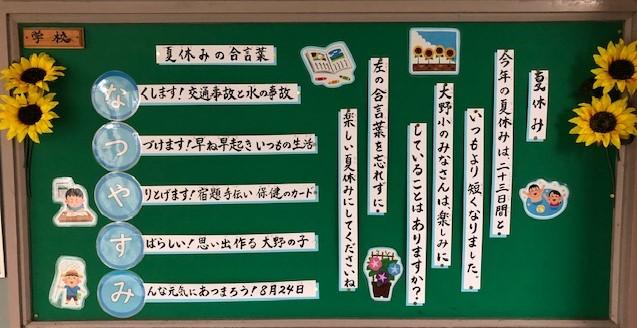 学校
夏休み
今年の夏休みは、二十三日間と
いつもより短くなりました。
大野小のみなさんは、楽しみに
していることはありますか?
左の合言葉を忘れずに、
楽しい夏休みにしてくださいね
夏休みの合言葉
なくします!交通事故と水の事故
つづけます!早ね早起きいつもの生活
やりとげます!宿題手伝い保健のカード
すばらしい!思い出作る大野の子
みんな元気にあつまろう!8月24日